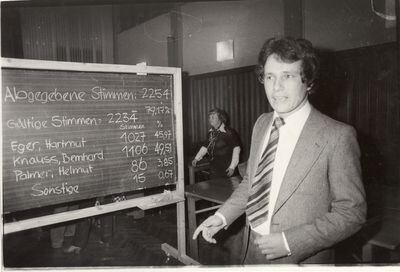 Abgegebene Stimmen: 2254
79,17%
Gültige Stimmen: 2234
Stimmen %
Eger, Hartmut 1027 45,97
Knauss, Bernhard 1106 49,51
Palmer, Helmut 86 3.85
Sonstige 15 0.67